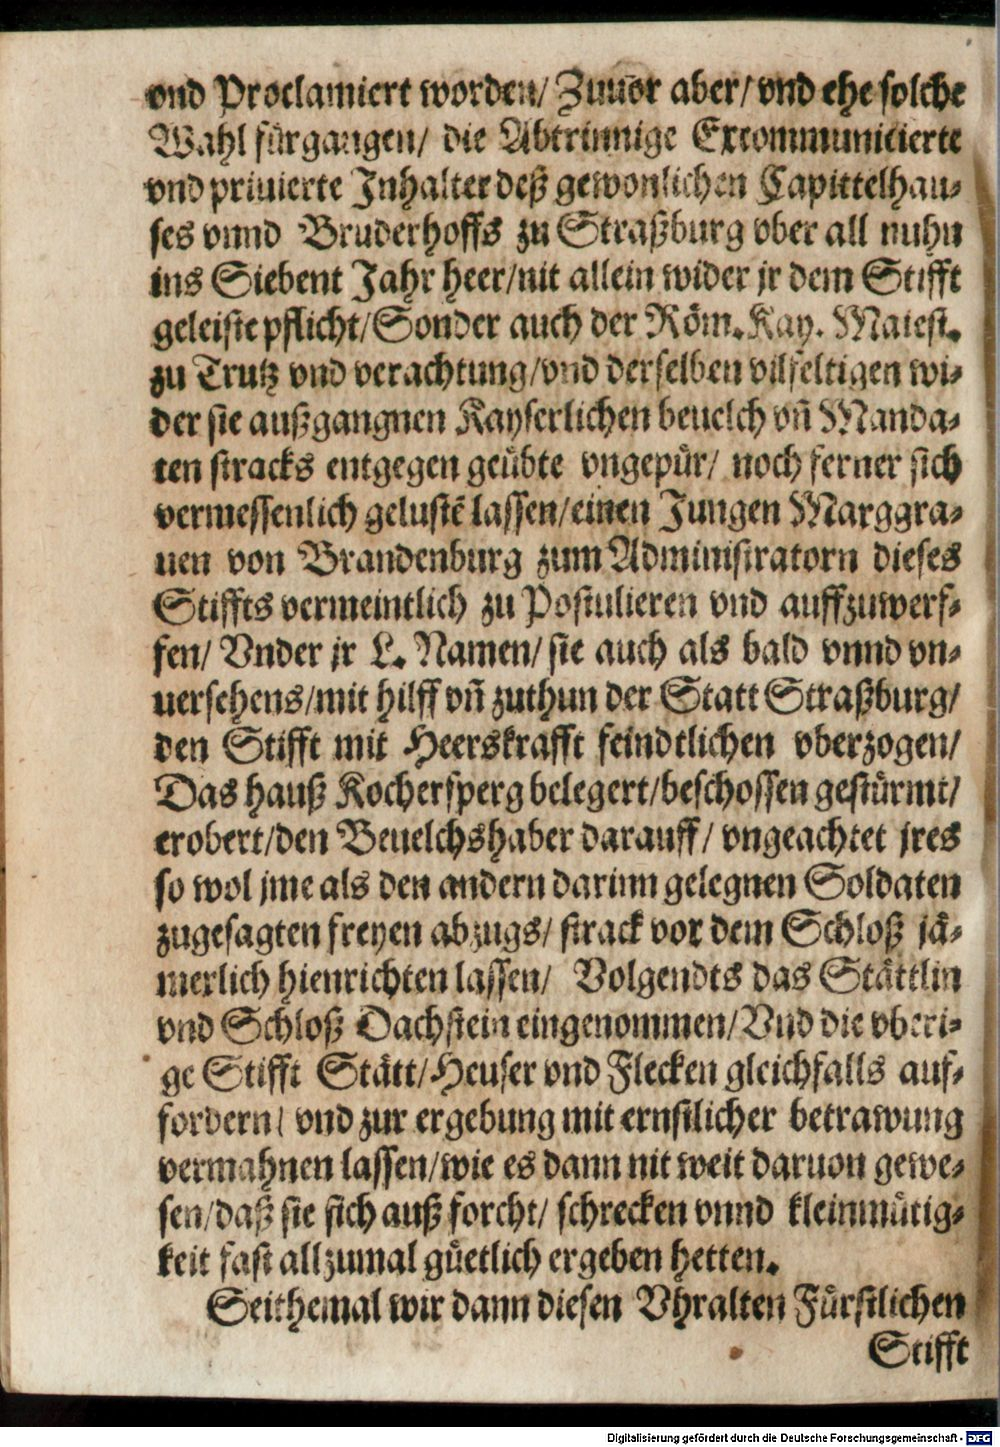 vnd Proclamiert worden/ Zuuor aber/ vnd ehe solche
Wahl fürgangen/ die Abtrinnige Excommunicierte
vnd priuierte Inhalter deß gewonlichen Capittelhau-
ses vnnd Bruderhoffs zu Straßburg vber all nuhn
ins Siebent Jahr heer/nit allein wider jr dem Stifft
geleiste pflicht/Sonder auch der Röm. Kay. Maiest.
zu Trutz vnd verachtung/vnd derselben vilfeltigen wi-
der sie außgangnen Kayserlichen beuelch vñ Manda-
ten stracks entgegen geübte vngepür/ noch ferner sich
vermessenlich gelustē lassen/einen Jungen Marggra-
uen von Brandenburg zum Administratorn dieses
Stiffts vermeintlich zu Postulieren vnd auffzuwerf-
fen/ Vnder jr L. Namen/ sie auch als bald vnnd vn-
uersehens/mit hilff vñ zuthun der Statt Straßburg/
den Stifft mit Heerskrafft feindtlichen vberzogen/
Das hauß Kochersperg belegert/beschossen gestürmt/
erobert/den Beuelchshaber darauff/ vngeachtet jres
so wol jme als den andern darinn gelegnen Soldaten
zugesagten freyen abzugs/ strack vor dem Schloß jä-
merlich hienrichten lassen/ Volgendts das Stättlin
vnd Schloß Dachstein eingenommen/Vnd die vberi-
ge Stifft Stätt/Heuser vnd Flecken gleichfalls auf-
fordern/ vnd zur ergebung mit ernstlicher betrawung
vermahnen lassen/wie es dann nit weit daruon gewe-
sen/daß sie sich auß forcht/ schrecken vnnd kleinmütig-
keit fast allzumal güetlich ergeben hetten.
Seithemal wir dann diesen Vhralten Fürstlichen
Stifft
Digitalisierung gefördert durch die Deutsche Forschungsgemeinschaft - DFG